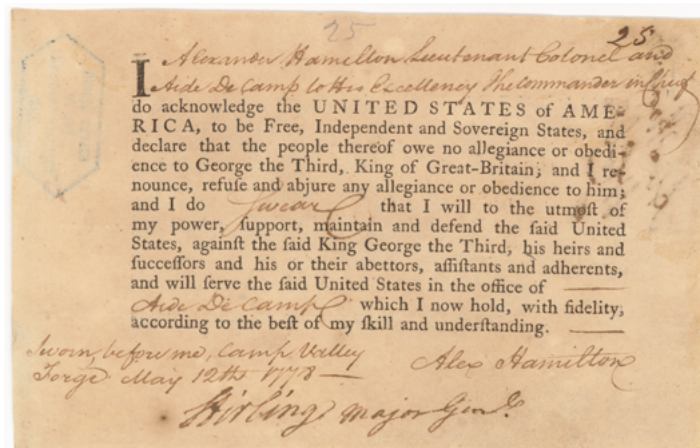 25
25
I Alexander Hamilton Lieutenant Colonel and
Aide De Camp to His Excellency The Commander in Chief
do acknowledge the UNITED STATES of AME-
RICA, to be Free, Independent and Sovereign States, and
declare that the people thereof owe no allegiance or obedi-
ence to George the Third, King of Great-Britain; and I re-
nounce, refuſe and abjure any allegiance or obedience to him;
and I do Swear that I will to the utmoſt of
my power, ſupport, maintain and defend the ſaid United
States, againſt the ſaid King George the Third, his heirs and
ſucceſſors and his or their abettors, aſſiſtants and adherents,
and will ſerve the ſaid United States in the office of
Aide De Camp which I now hold, with fidelity,
according to the beſt of my ſkill and underſtanding.
Sworn, before me, Camp Valley
Forge May 12th 1778 —
Alex Hamilton
Stirling, Major Genl.